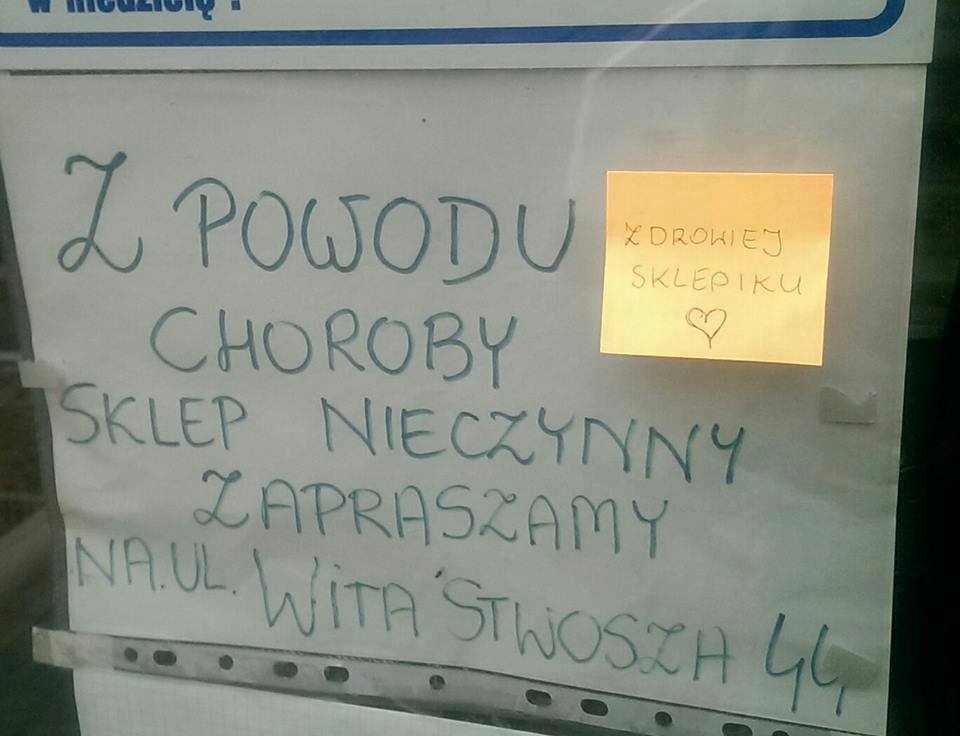 w niedzielę !
Z POWODU
CHOROBY
SKLEP NIECZYNNY
ZAPRASZAMY
NA.UL. WITA STWOSZA 44
ZDROWIEJ
SKLEPIKU